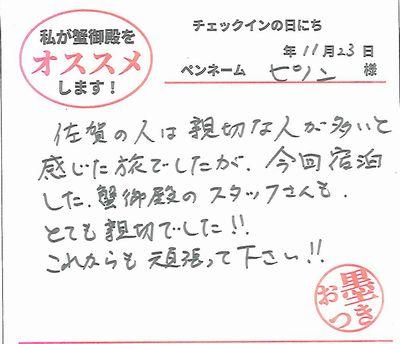 私が蟹御殿を
オススメ
します！
チェックインの日にち
年 11月 23 日
ペンネーム ピノン 様
佐賀の人は親切な人が多いと
感じた旅でしたが、今回宿泊
した、蟹御殿のスタッフさんも、
とても親切でした!!
これからも頑張って下さい!!
お墨
つき